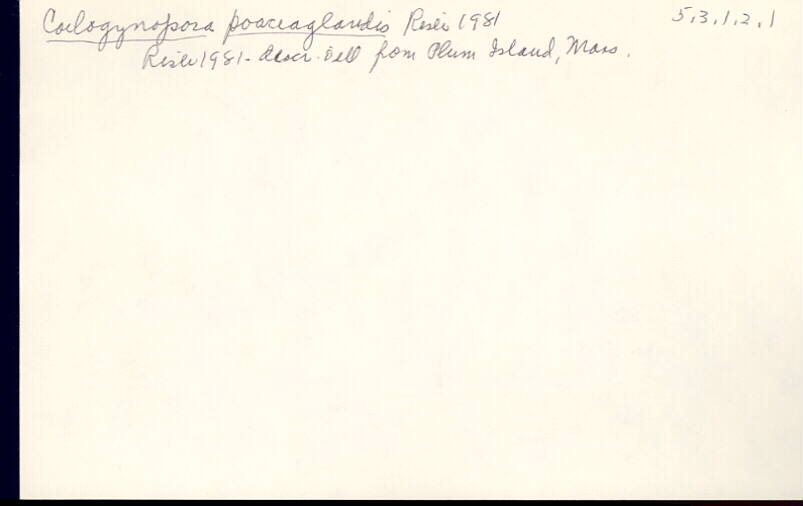 Coelogynopora poaceaglandis Riser 1981 5.3.1.2.1
Riser 1981 - descr. ill from Plum Island, Mass.